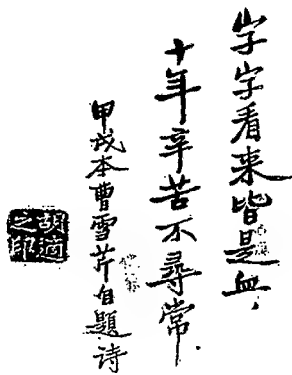 字字看来皆是血，
十年辛苦不尋常．
甲戌本曹雪芹自題詩
胡適之印